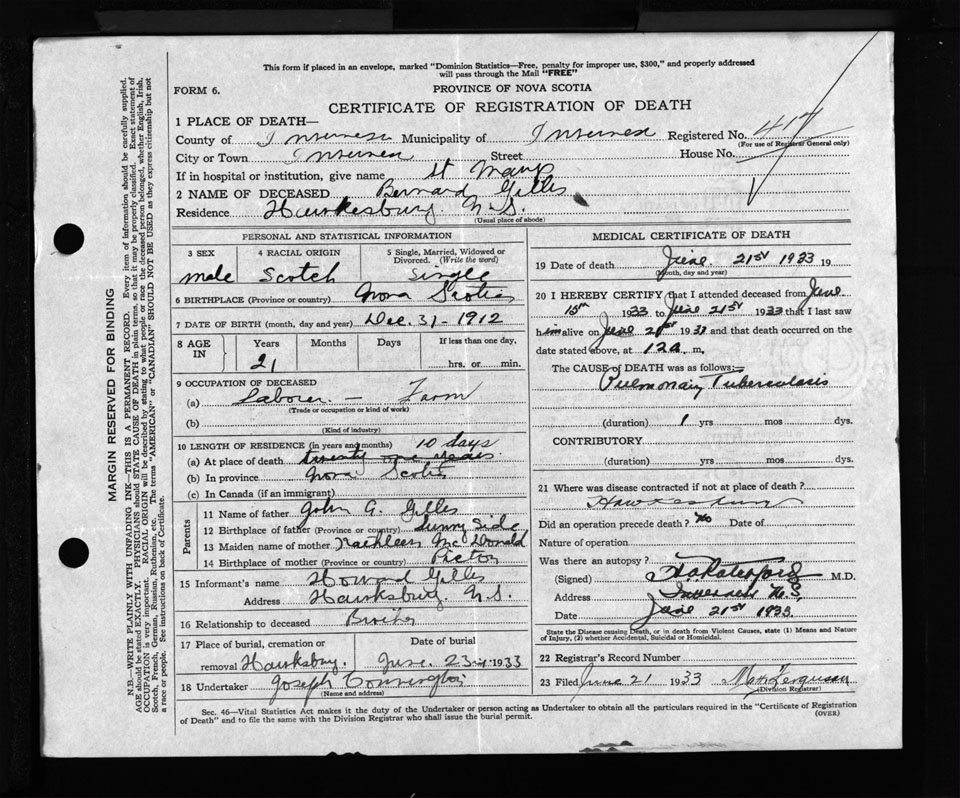 This form if placed in an envelope, marked "Dominion Statistics—Free, penalty for improper use, $300," and properly addressed
will pass through the Mail "FREE"
FORM 6. PROVINCE OF NOVA SCOTIA
CERTIFICATE OF REGISTRATION OF DEATH
1 PLACE OF DEATH—
County of Inverness Municipality of Inverness Registered No. 417
(For use of Registrar General only)
City or Town Inverness Street House No.
If in hospital or institution, give name St Marys
2 NAME OF DECEASED Bernard Gilles
Residence Hawkesbury N.S.
(Usual place of abode)
PERSONAL AND STATISTICAL INFORMATION
3 SEX 4 RACIAL ORIGIN 5 Single, Married, Widowed or Divorced. (Write the word)
male Scotch Single
6 BIRTHPLACE (Province or country) Nova Scotia
7 DATE OF BIRTH (month, day and year) Dec. 31-1912
8 AGE IN Years Months Days If less than one day,
21 hrs. or min.
9 OCCUPATION OF DECEASED
(a) Laborer — Farm
(Trade or occupation or kind of work)
(b)
(Kind of industry)
10 LENGTH OF RESIDENCE (in years and months) 10 days
(a) At place of death twenty one years
(b) In province Nova Scotia
(c) In Canada (if an immigrant)
Parents
11 Name of father John G. Gilles
12 Birthplace of father (Province or country) Sunny Side
13 Maiden name of mother Kathleen McDonald
14 Birthplace of mother (Province or country) Pictou
15 Informant's name Howard Gilles
Address Hawksbury, N.S.
16 Relationship to deceased Brother
17 Place of burial, cremation or Date of burial
removal Hawksbury. June 23rd 1933
18 Undertaker Joseph
(Name and address)
MEDICAL CERTIFICATE OF DEATH
19 Date of death June 21st 1933 19
(Month, day and year)
20 I HEREBY CERTIFY that I attended deceased from June
15th 1933 to June 21st 1933 that I last saw
him alive on June 21st 1933 and that death occurred on the
date stated above, at 12 a. m.
The CAUSE OF DEATH was as follows:—
Pulmonary Tuberculosis
(duration) 1 yrs mos dys.
CONTRIBUTORY
(duration) yrs mos dys.
21 Where was disease contracted if not at place of death?
Hawkesbury
Did an operation precede death? No Date of
Nature of operation
Was there an autopsy?
(Signed) M.D.
Address Inverness N.S.
Date June 21st 1933.
State the Disease causing Death, or in death from Violent Causes, state (1) Means and Nature
of Injury, (2) whether Accidental, Suicidal or Homicidal.
22 Registrar's Record Number
23 Filed June 21 1933 Ferguson
(Division Registrar)
Sec. 46—Vital Statistics Act makes it the duty of the Undertaker or person acting as Undertaker to obtain all the particulars required in the "Certificate of Registration
of Death" and to file the same with the Division Registrar who shall issue the burial permit.
(OVER)
MARGIN RESERVED FOR BINDING
N.B.—WRITE PLAINLY WITH UNFADING INK—THIS IS A PERMANENT RECORD. Every item of information should be carefully supplied.
AGE should be stated EXACTLY. PHYSICIANS should STATE CAUSE OF DEATH in plain terms, so that it may be properly classified. Exact statement of
OCCUPATION is very important. RACIAL ORIGIN will be described by stating to what people or race the deceased person belonged, whether English, Irish,
Scotch, French, German, Russian, Ruthenian, etc. The terms "AMERICAN" or "CANADIAN" SHOULD NOT BE USED as they express citizenship but not
a race or people. See instructions on back of Certificate.